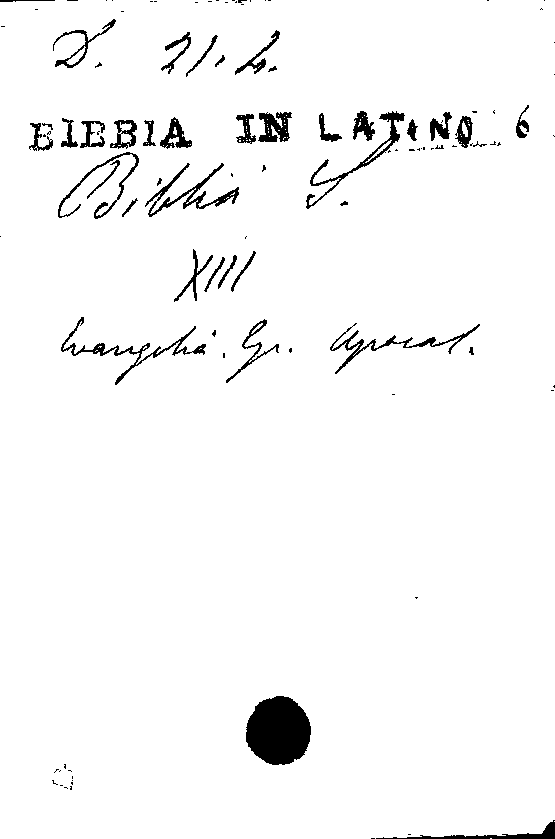 D. 21. 2.
BIBBIA IN LATINO 6
Biblia S.
XIII
Evangelia. Ep. Apocal.